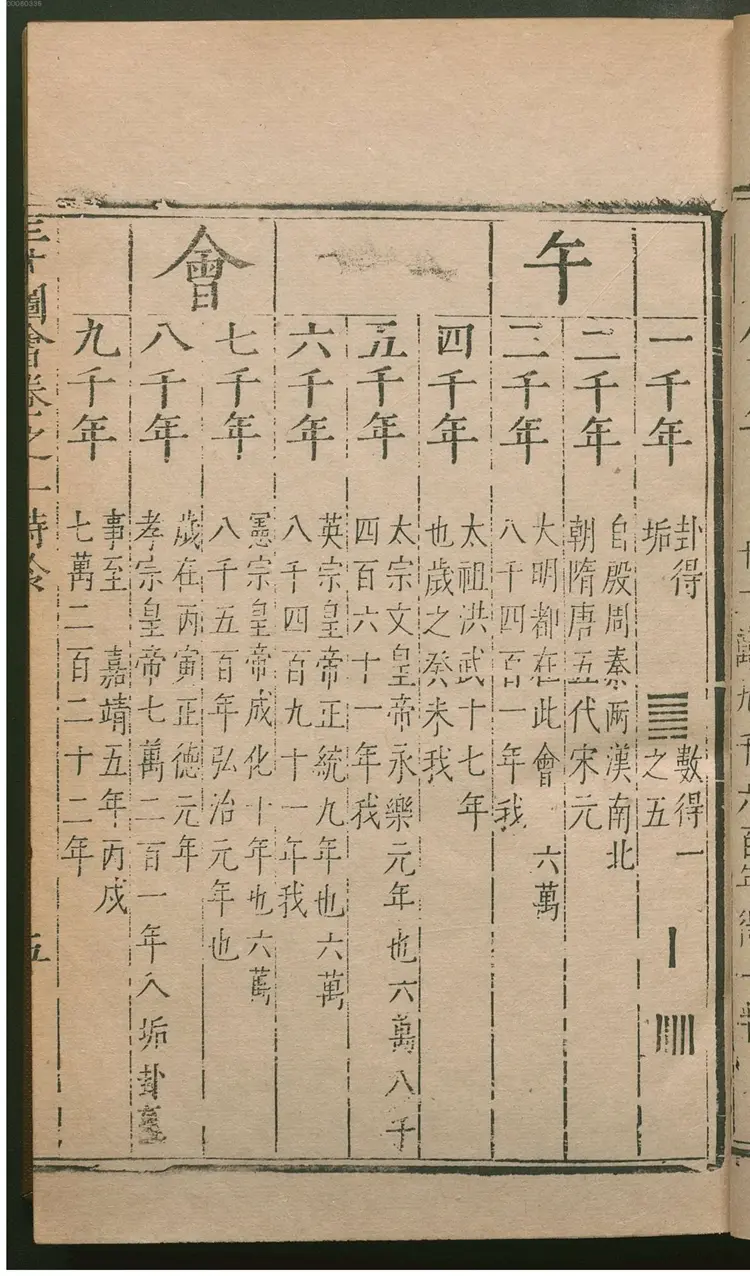 00080336
午會
一千年
卦得 ䷫ 數得一
垢 之五
二千年
自殷周秦两漢南北
朝隋唐五代宋元
三千年
大明都在此會 六萬
八千四百一年我
四千年
太祖洪武十七年
也歲之癸未我
五千年
太宗文皇帝永樂元年也六萬八千
四百六十一年我
六千年
英宗皇帝正統九年也六萬
八千四百九十一年我
七千年
憲宗皇帝成化十年也六萬
八千五百年弘治元年也
八千年
歲在丙寅正德元年
孝宗皇帝七萬二百一年入垢卦
九千年
事至 嘉靖五年丙戍
七萬二百二十二年
三才圖會卷之一時令 五